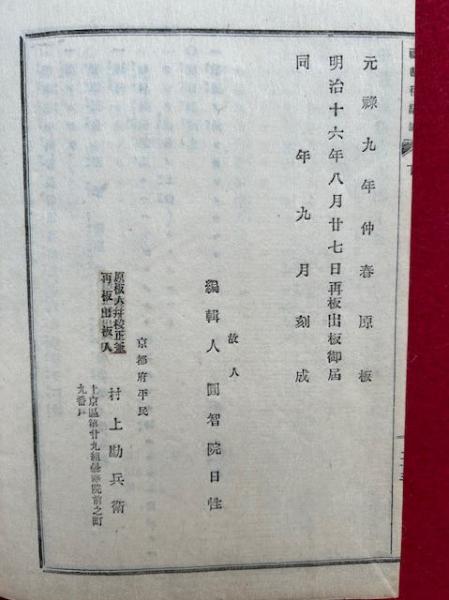 元祿九年仲春原板
明治十六年八月廿七日再板出板御届
同年九月刻成
故人
編輯人圓智院日性
京都府平民
原板人并校正兼
再板出板人
村上勘兵衛
上京區第廿九組
院前之町
九番戸